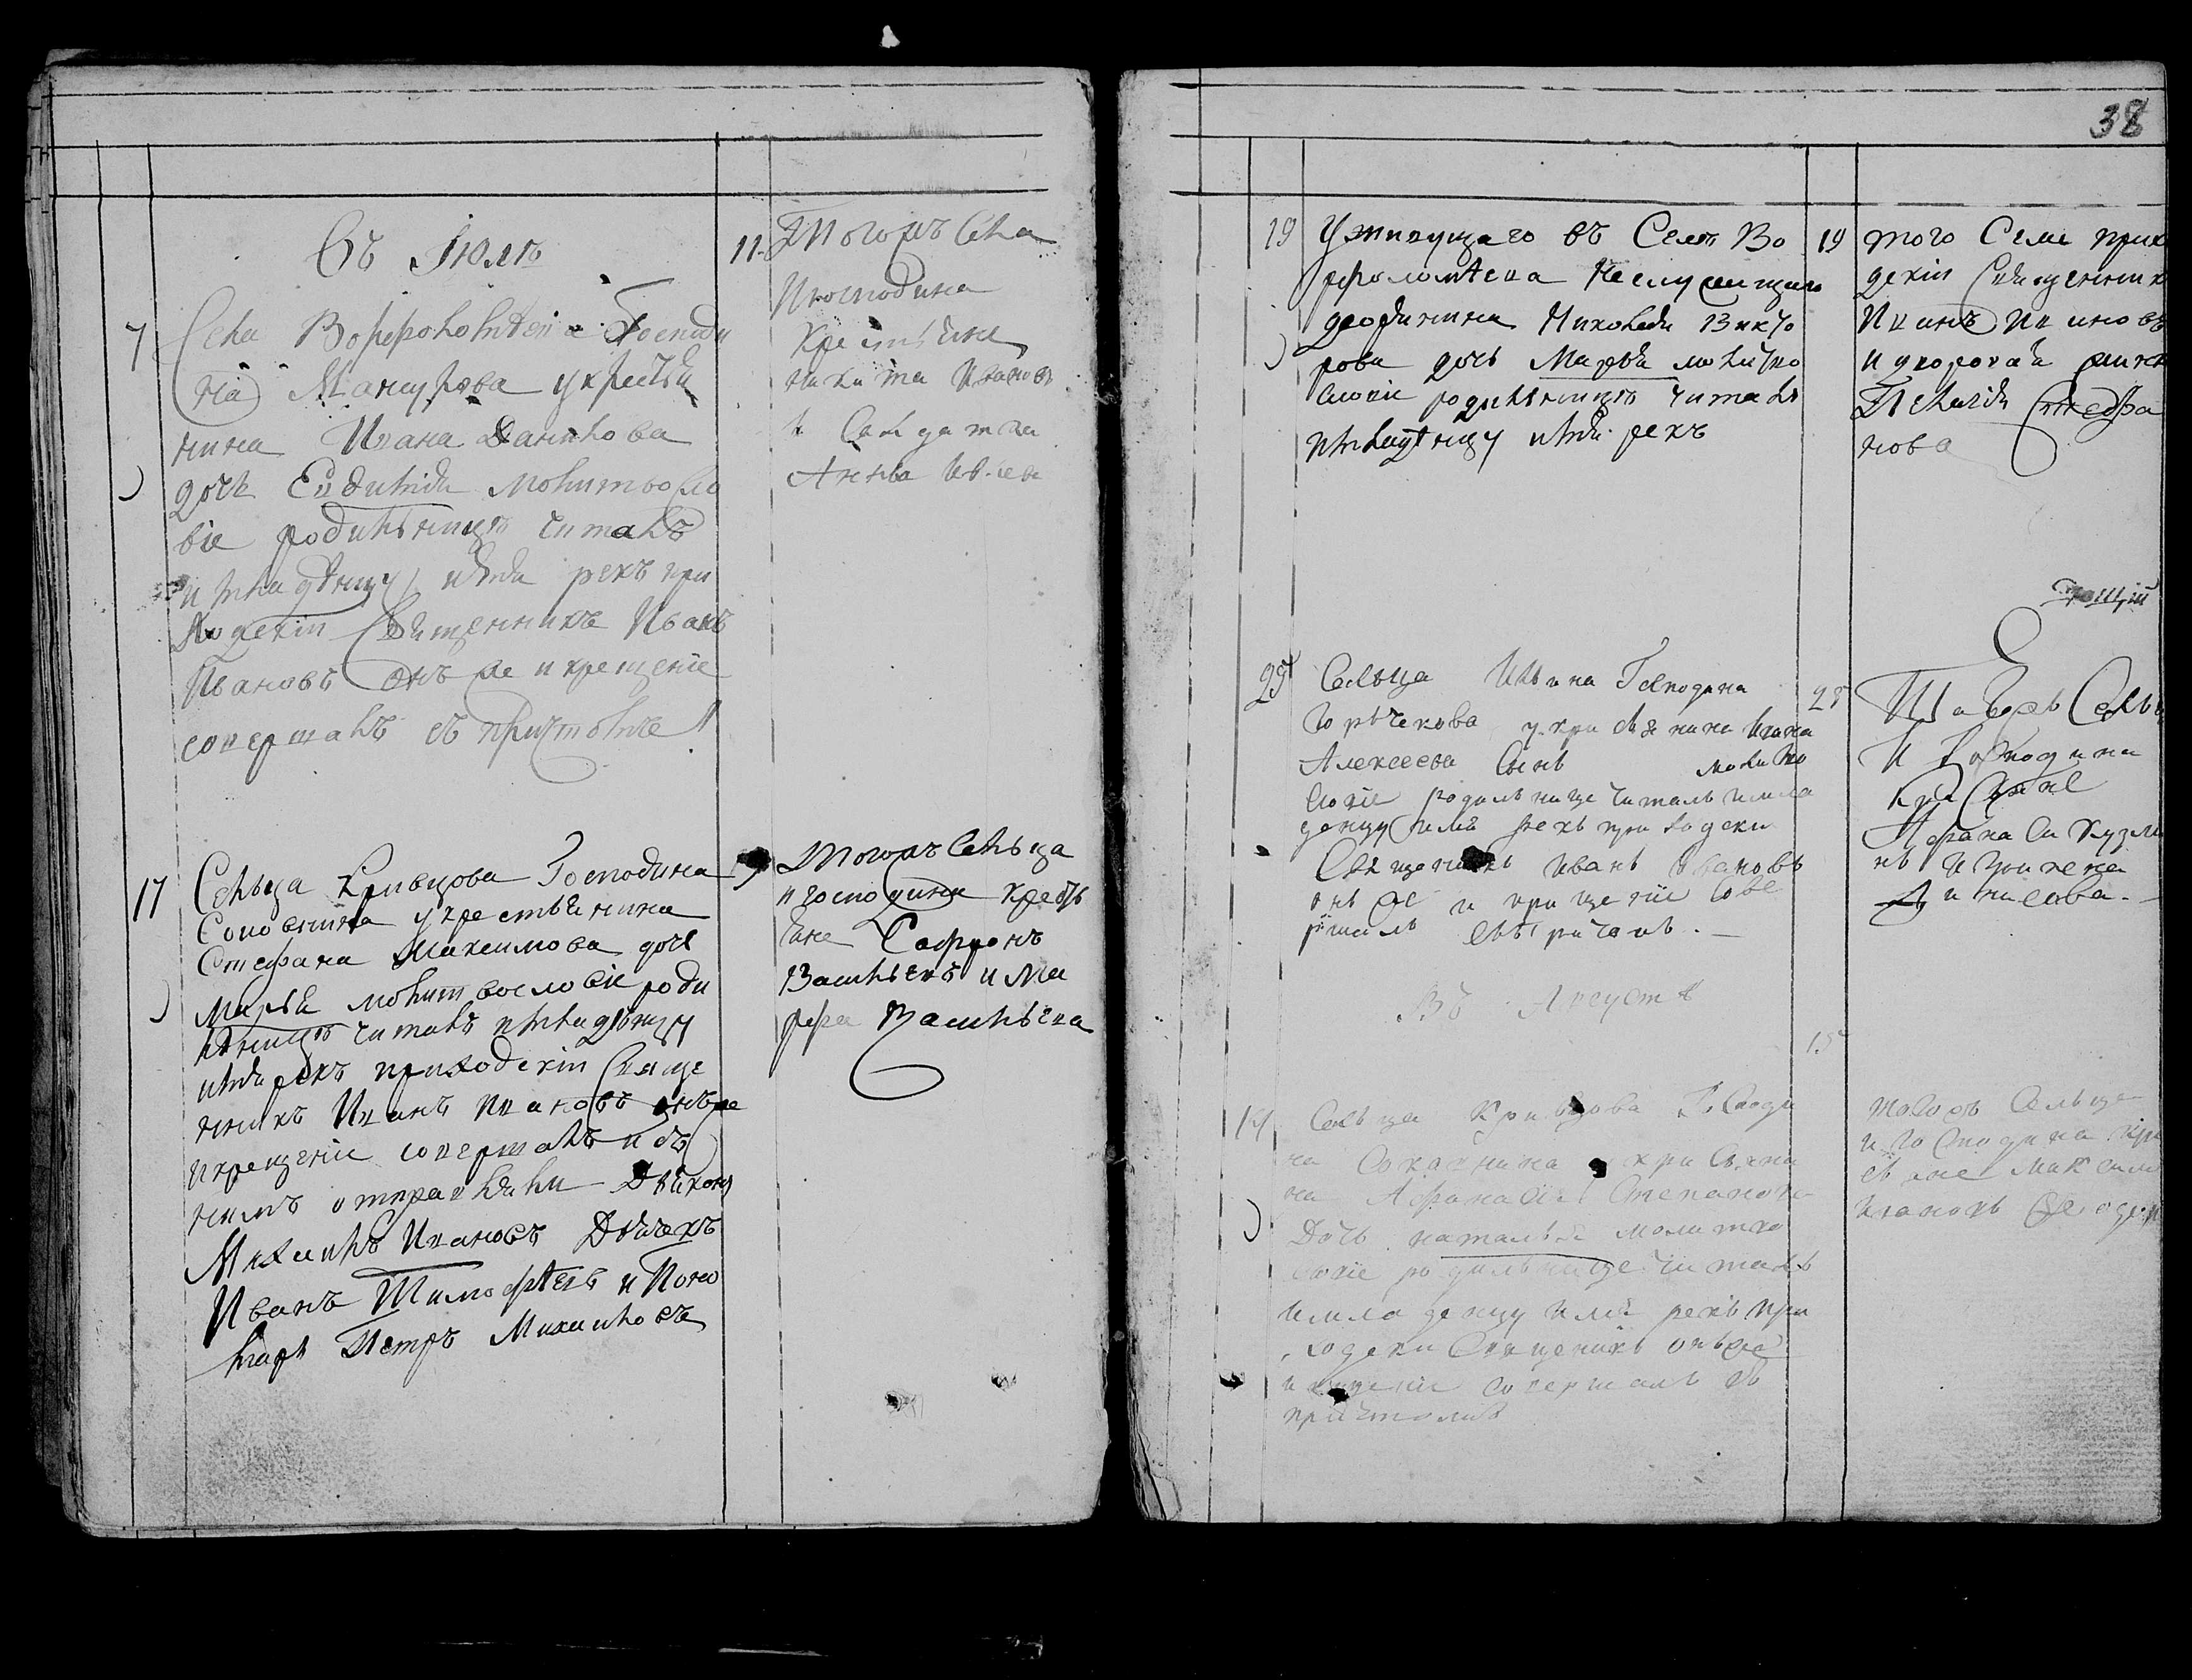 Въ Іюлѣ
7
Села Ворфоломѣева Господи
на Мансурова у крестья
нина Ивана Данилова
дочь Евдинія молитвосло
віе родильницѣ читалъ
и младѣнцу имя рекъ при
ходскій Священникъ Иванъ
Ивановъ онъ же и крещеніе
совершалъ съ причтомъ
11.
Тогожъ Села
и господина
Крестьяне
Никита Иванов
Салдатка
Анна
17
Сельца Кривцова Господина
у крестьянина
Стефана Максимова дочь
Марья молитвословіе роди
льницѣ читалъ и младѣнцу
имя рекъ приходскій Свяще
нникъ Иванъ Ивановъ онъ же
и крещеніе совершалъ и съ
нимъ отправляли Дьяконъ
Михаилъ Ивановъ Дьячекъ
Иванъ Тимофѣевъ и Поно
марь Петръ Михаиловъ
Тогожъ Сельца
и господина кресть
яне Софронъ
Васильевъ и Ма
рфа Васильева
38
19
Уживущаго въ Селѣ Во
рфоломѣева неслужащаго
дворянина Николая Викто
рова дочь Марья молитво
словіе родильницѣ читалъ
и младѣнцу имя рекъ
19
того Села прихо
дскій Священник
Иванъ Ивановъ
и дворовая
Пелагія Стефа
нова
25
Сельца Господина
у крисьянина Ивана
Алексеева Сынъ молитво
словіе родильнице читалъ имла
денцу имя рекъ приходски
Священикъ Иванъ Ивановъ
онъ же и крищеніе сове
ршалъ съ причтомъ.
Тогожъ Сельца
и Господина
крисяне
Афанаси Кузми
нъ и
Динисова.
Въ Августѣ
15
14
Сельца Кривцова Господи
на у крисьяни
на Афанасія Степанова
Дочь наталья молитво
словіе родильнице читалъ
имладенцу имя рекъ при
ходски Священикъ онъже
и крищеніе совершалъ съ
причтомъ
тогожъ Сельца
и Господина кри
сьяне Максимъ
Ивановъ